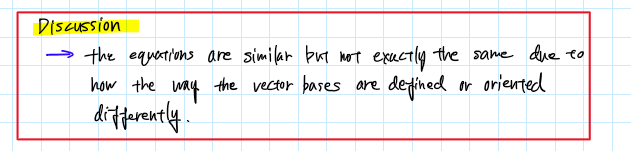 Discussion
→ the equations are similar but not exactly the same due to
how the way the vector bases are defined or oriented
differently.